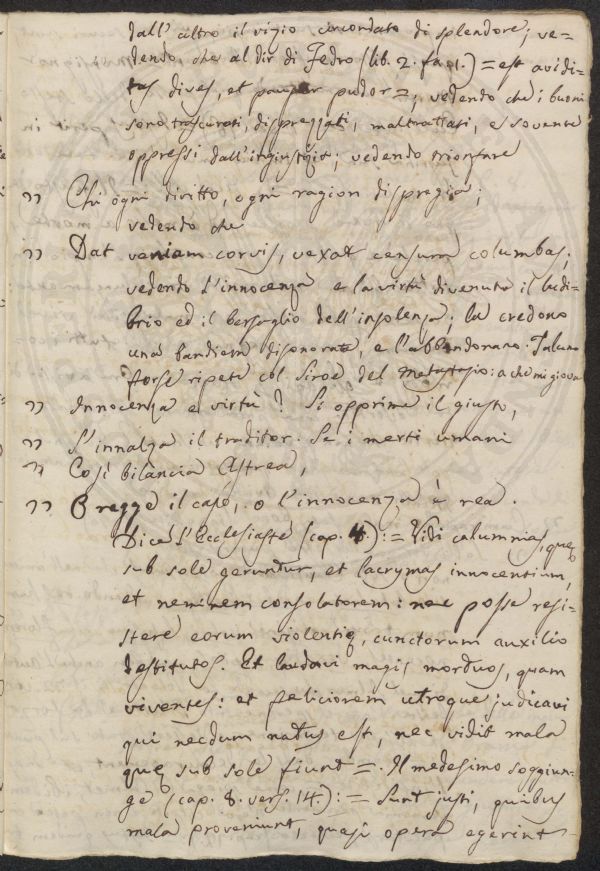 dall' altro il vizio circondato di splendore; ve=
dendo, che al dir di Fedro (lib. 2. fa. 1.) = est avidi=
tas dives, et pauper pudor =; vedendo che i buoni
sono trascurati, disprezzati, maltrattati, e sovente
oppressi dall'ingiustizia; vedendo trionfare
" Chi ogni diritto, ogni ragion dispregia;
vedendo che
" Dat veniam corvis, vexat censura columbas;
vedendo l'innocenza e la virtù divenuta il ludi=
brio ed il bersaglio dell'insolenza; la credono
una bandiera disonorata, e l'abbandonano. Taluno
forse ripete col Siroe del Metastasio: a che mi giova
" Innocenza e virtù? Si opprime il giusto,
" S'innalza il traditor. Se i merti umani
" Così bilancia Astrea,
" O regge il caso, o l'innocenza è rea.
Dice l'Ecclesiaste (cap. 4.): = Vidi calumnias, quę
sub sole geruntur, et lacrymas innocentium,
et neminem consolatorem: nec posse resi=
stere eorum violentię, cunctorum auxilio
destitutos. Et laudavi magis mortuos, quam
viventes: et feliciorem utroque judicavi
qui necdum natus est, nec vidit mala
quę sub sole fiunt =. Il medesimo soggiun=
ge (cap. 8. vers. 14.): = Sunt justi, quibus
mala proveniunt, quasi opera egerint